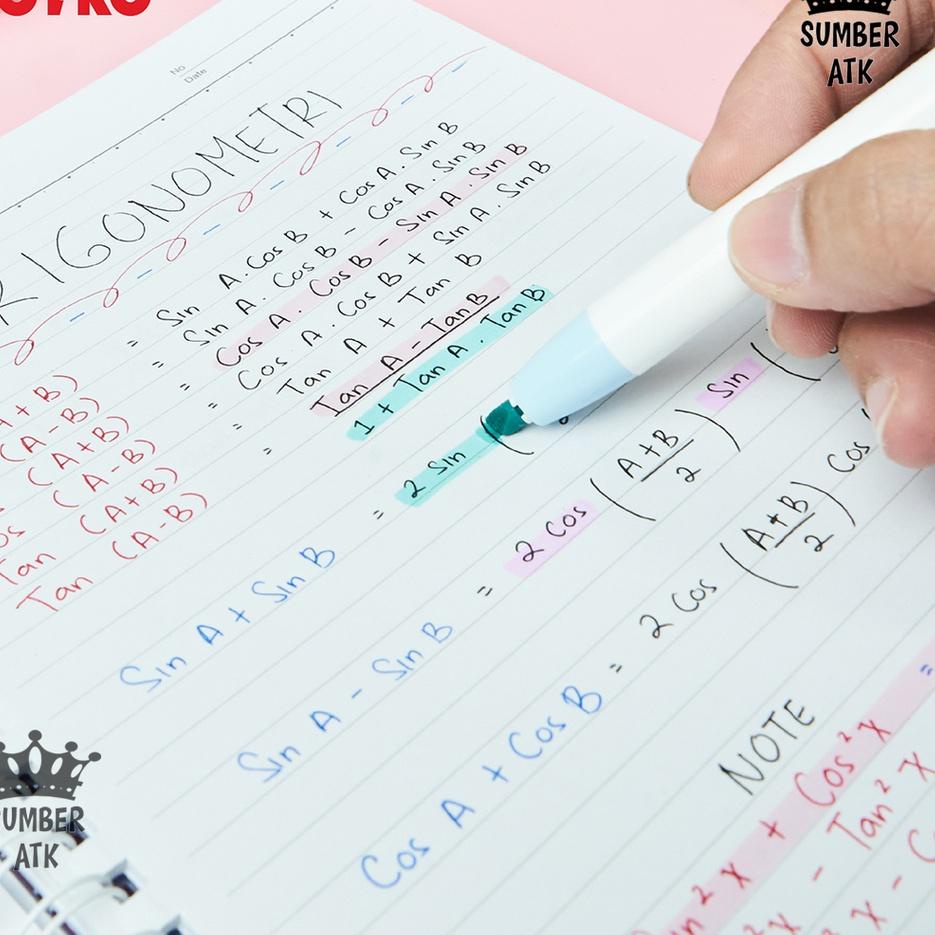 SUMBER
ATK
No
Date
TRIGONOMETRI
(A+B) = Sin A.Cos B + Cos A. Sin B
(A-B) = Sin A. Cos B - Cos A. Sin B
(A+B) = Cos A. Cos B - Sin A. Sin B
Cos (A-B) = Cos A. Cos B + Sin A. Sin B
Tan (A+B) = Tan A + Tan B
Tan (A-B) = Tan A - Tan B
1 + Tan A. Tan B
Sin A + Sin B = 2 Sin (
Sin A - Sin B = 2 Cos (A+B/2) Sin (
Cos A + Cos B = 2 Cos (A+B/2) Cos
NOTE
Sin²x + Cos²x =
²x - Tan²x
²x -
SUMBER
ATK